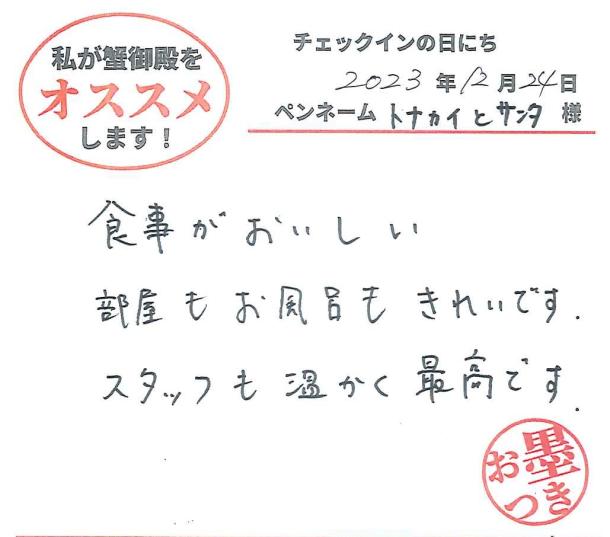 私が蟹御殿を
オススメ
します!
チェックインの日にち
2023年12月24日
ペンネーム トナカイとサンタ 様
食事がおいしい
部屋もお風呂もきれいです.
スタッフも温かく最高です.
お墨
つき